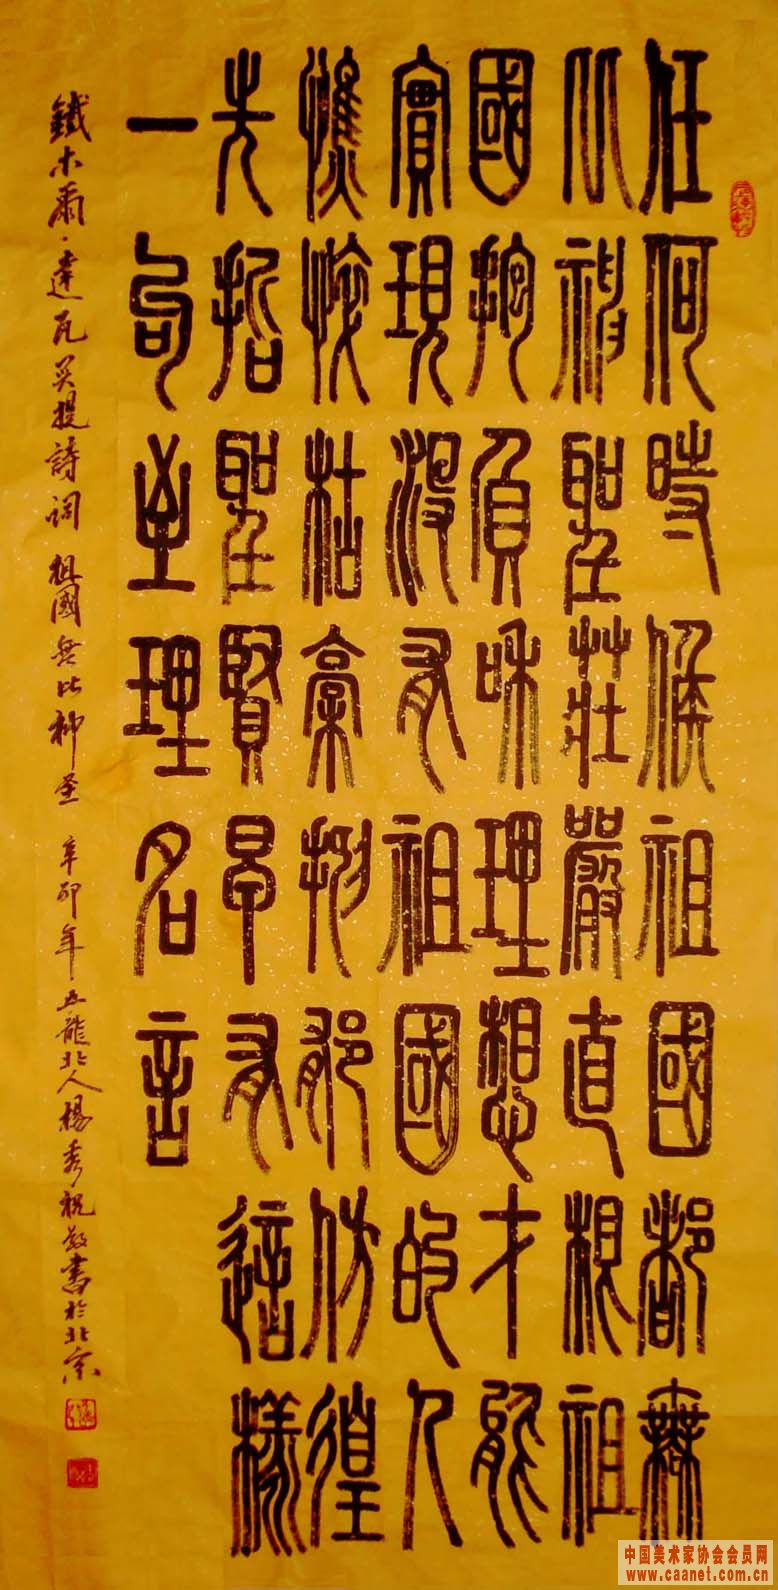 任何時候祖國都無
比神聖莊嚴直根祖
國抱負和理想才能
實現沒有祖國的人
憔悴枯槁抑郁彷徨
先哲聖賢早有這樣
一句至理名言
鐵木爾·達瓦買提詩詞 祖國無比神圣 辛卯年·五龍北人楊秀祝敬書於北京
中国美术家协会会员网
www.caanet.com.cn